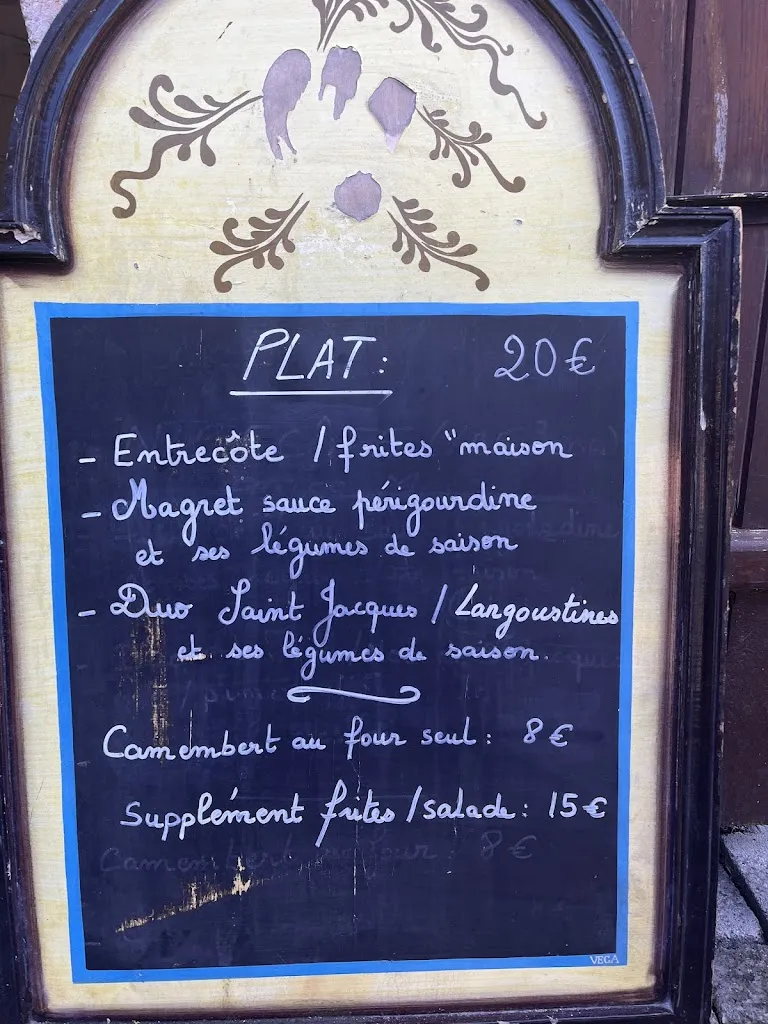 PLAT: 20€
- Entrecôte / frites "maison
- Magret sauce périgourdine
et ses légumes de saison
- Duo Saint Jacques / Langoustines
et ses légumes de saison.
Camembert au four seul : 8€
Supplément frites / salade : 15€
Camembert au four : 8€
VEGA